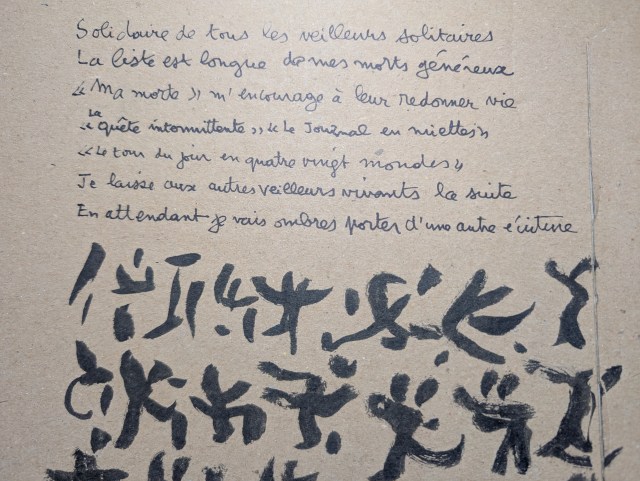 Solidaire de tous les veilleurs solitaires
La liste est longue de mes morts généreux
« Ma morte » m'encourage à leur redonner vie
« La Quête intermittente » « Le Journal en miettes »
« Le tour du jour en quatre vingt mondes »
Je laisse aux autres veilleurs vivants la suite
En attendant je vais ombres porter d'une autre écriture